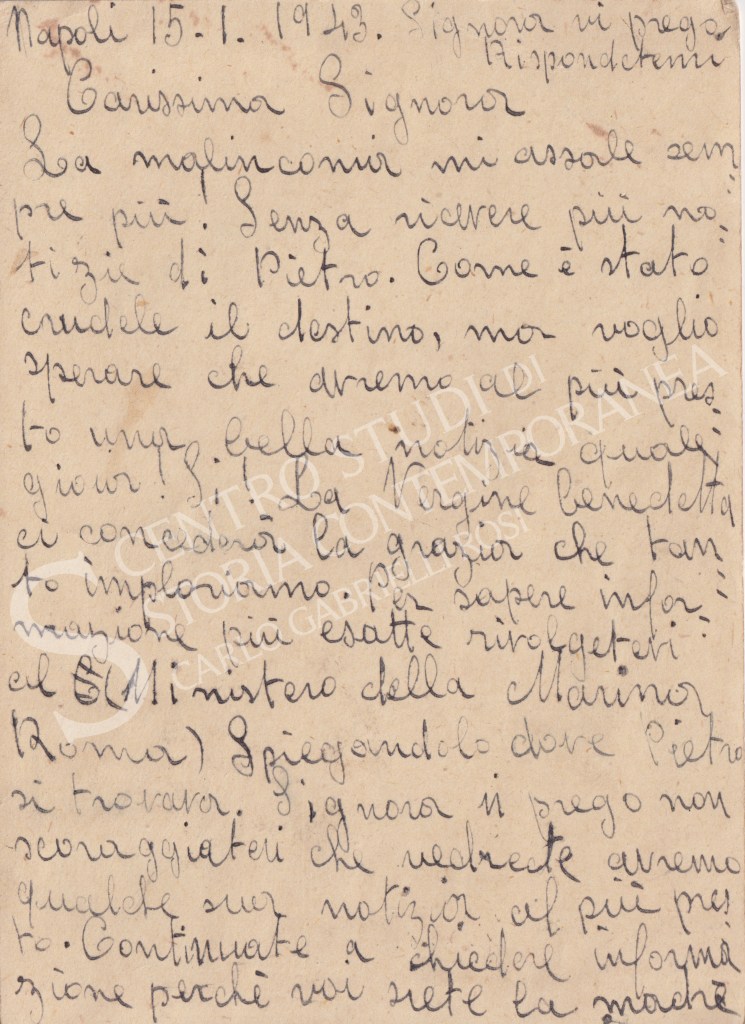 Napoli 15-1. 1943. Signora vi prego
Rispondetemi
Carissima Signora
La malinconia mi assale sem-
pre più! Senza ricevere più no-
tizie di Pietro. Come è stato
crudele il destino, ma voglio
sperare che avremo al più pres-
to una bella notizia quale
gioia! Si! La Vergine benedetta
ci concederà la grazia che tan-
to imploriamo. per sapere infor-
mazione più esatte rivolgetevi
al (Ministero della Marina
Roma) Spiegandolo dove Pietro
si trovava. Signora vi prego non
scoraggiatevi che vedrete avremo
qualche sua notizia al più pres-
to. Continuate a chiedere informa
zione perchè voi siete la madre
CENTRO STUDI DI
STORIA CONTEMPORANEA
CARLO GABRIELLI ROSI